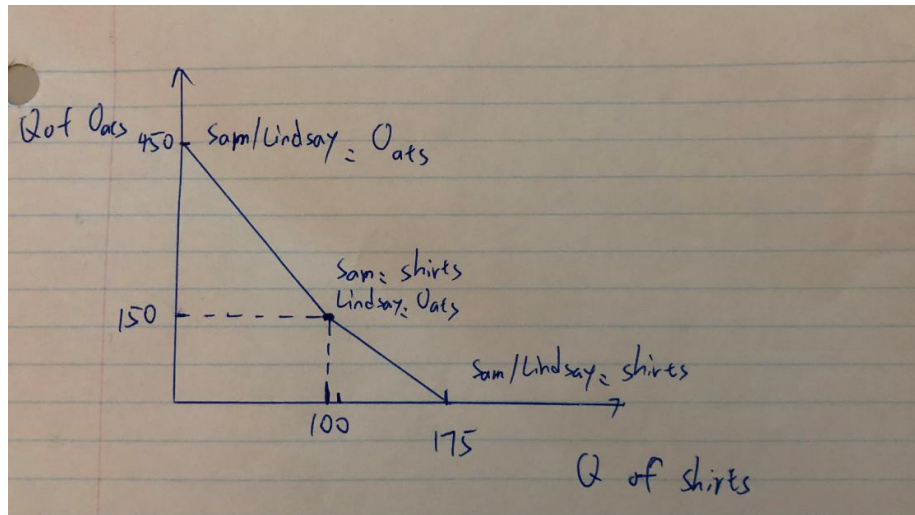 Q of Oats
450
Sam/Lindsay: Oats
Sam: shirts
Lindsay: Oats
150
Sam/Lindsay: shirts
100
175
Q of shirts